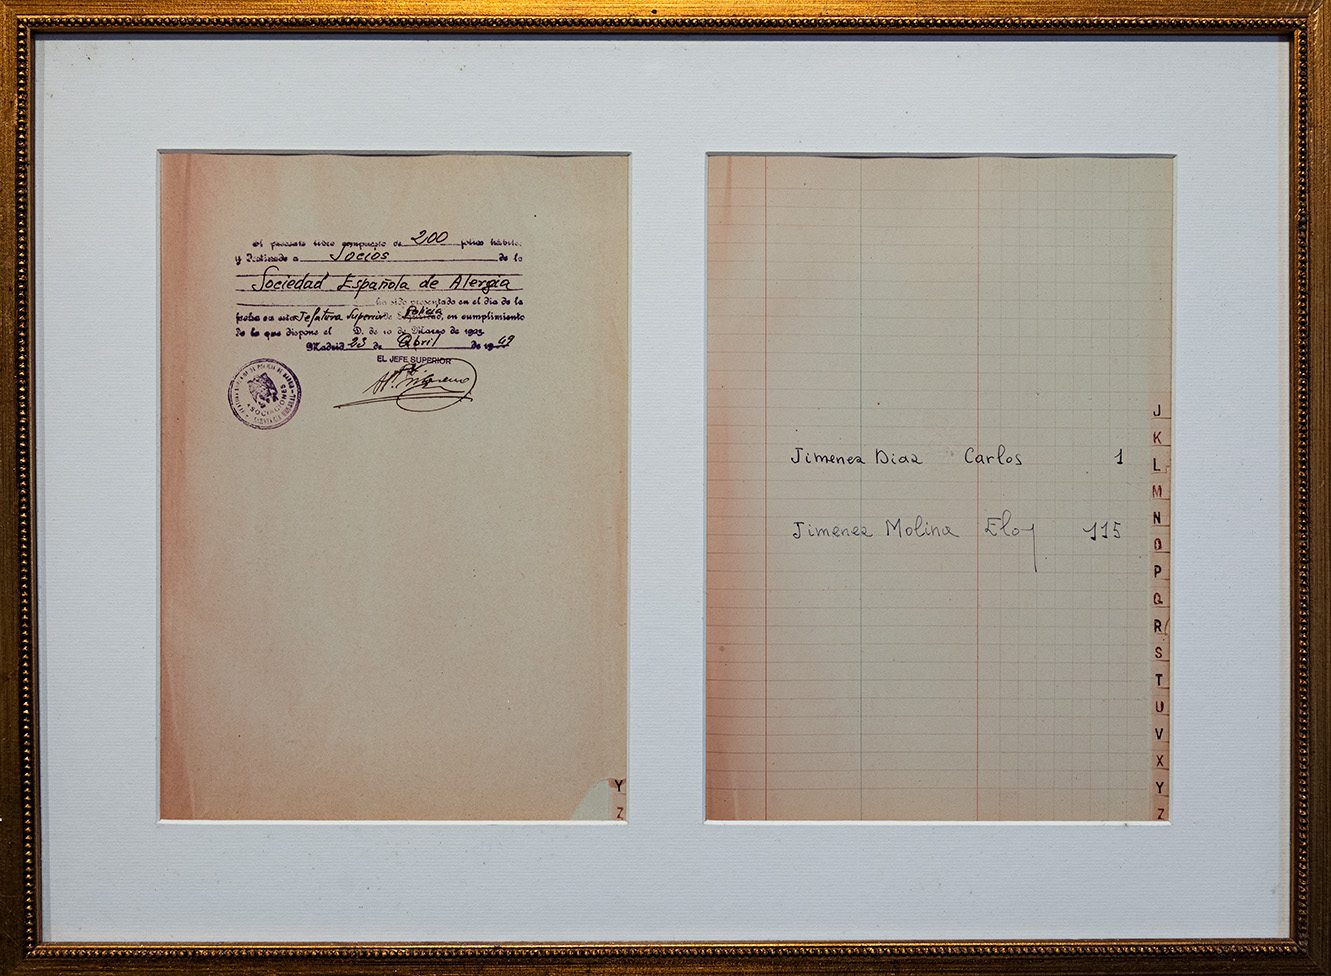 El presente libro compuesto de 200 folios hábiles
y Destinado a Socios de la
Sociedad Española de Alergia
ha sido presentado en el día de la
fecha en esta Jefatura Superior de Policia, en cumplimiento
de lo que dispone el D. de 10 de Marzo de 1923
Madrid 23 de Abril de 1949
EL JEFE SUPERIOR
ASOCIACIONES
Y
Z
Jimenez Diaz Carlos 1
Jimenez Molina Eloy 115
J
K
L
M
N
O
P
Q
R
S
T
U
V
X
Y
Z